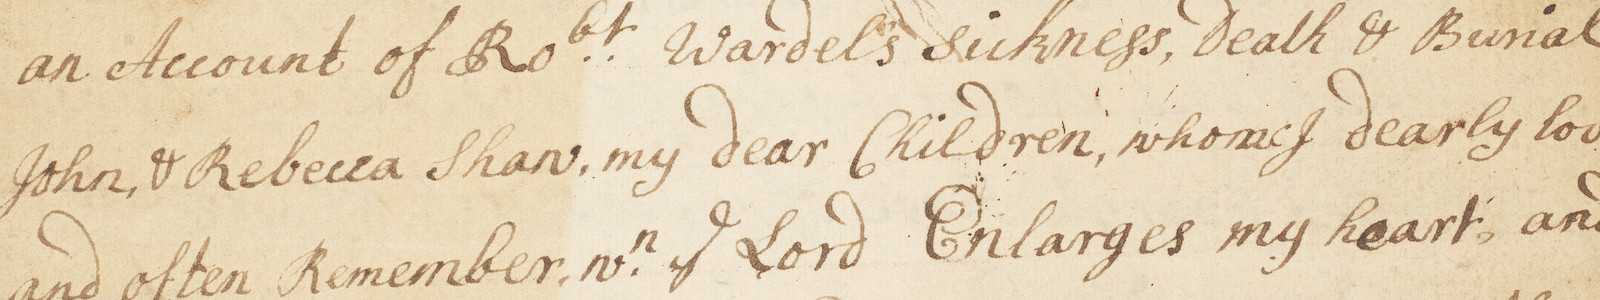 an Account of Robt. Wardel's Sickness, Death & Burial
John, & Rebecca Shaw, my dear Children, whome I dearly lov
and often Remember, wn. ye Lord Enlarges my heart, and